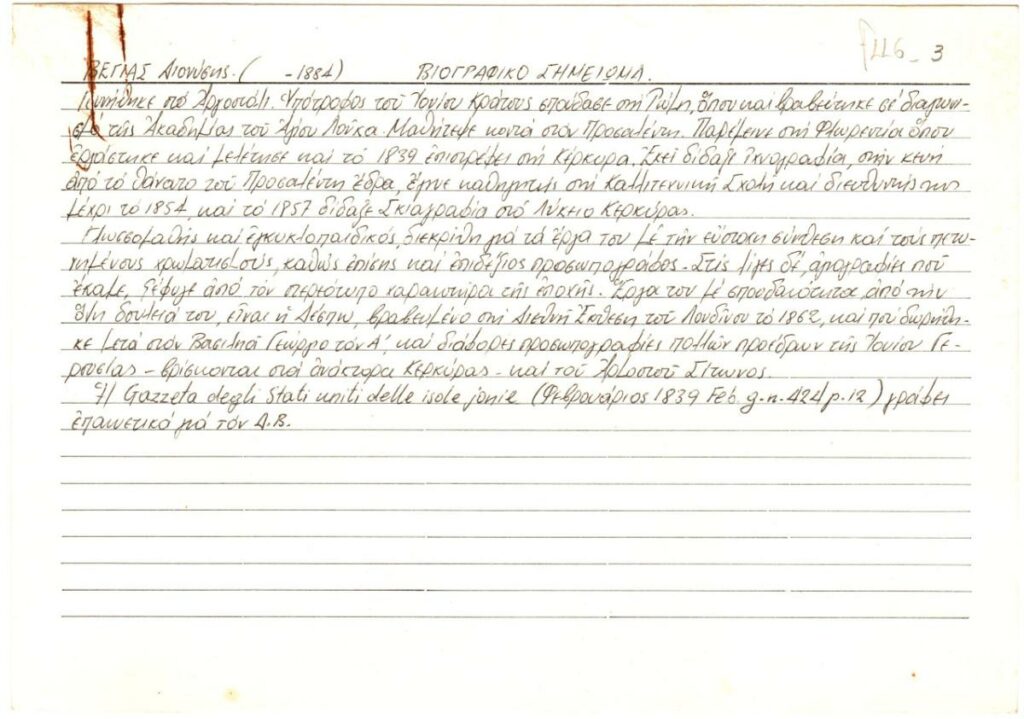 446 - 3
ΒΕΓΙΑΣ Διονύσης. ( -1884) ΒΙΟΓΡΑΦΙΚΟ ΣΗΜΕΙΩΜΑ.
Γεννήθηκε στό Ἀργοστόλι. Ὑπότροφος τοῦ Ἰονίου Κράτους σπούδασε στή Ρώμη, ὅπου καί βραβεύτηκε σέ διαγωνι-
σμό τῆς Ἀκαδημίας τοῦ Ἁγίου Λουκᾶ. Μαθήτεψε κοντά στόν Προσαλέντη. Παρέμεινε στή Φλωρεντία ὅπου
ἐργάστηκε καί μελέτησε καί τό 1839 ἐπιστρέφει στή Κέρκυρα. Ἐκεῖ δίδαξε ἰχνογραφία, στήν κενή
ἀπό τό θάνατο τοῦ Προσαλέντη ἕδρα, ἔγινε καθηγητής στή Καλλιτεχνική Σχολή καί διευθυντής της
μέχρι τό 1854, καί τό 1857 δίδαξε Σκιαγραφία στό Λύκειο Κερκύρας.
Γλωσσομαθής καί ἐγκυκλοπαιδικός, διεκρίθη γιά τά ἔργα του μέ τήν εὔστοχη σύνθεση καί τούς πετυ-
χημένους χρωματισμούς, καθώς ἐπίσης καί ἐπιδέξιος προσωπογράφος. Στίς λίγες δέ, ἁγιογραφίες πού
ἔκαμε, ξέφυγε ἀπό τόν στερεότυπο χαρακτήρα τῆς ἐποχῆς. Ἔργα του μέ σπουδαιότητα ἀπό τήν
ὅλη δουλειά του, εἶναι ἡ Δέσπω, βραβευμένο στή Διεθνῆ Ἔκθεση τοῦ Λονδίνου τό 1862, καί πού δωρήθη-
κε μετά στόν Βασιληᾶ Γεώργιο τόν Α΄, καί διάφορες προσωπογραφίες πολλῶν προέδρων τῆς Ἰονίου Γε-
ρουσίας - βρίσκονται στά ἀνάκτορα Κερκύρας - καί τοῦ Ἁρμοστοῦ Σίτωνος.
Ἡ Gazzeta degli Stati uniti delle isole jonie (Φεβρουάριος 1839 Feb. g. n. 424 p. 12) γράφει
ἐπαινετικά γιά τόν Δ.Β.